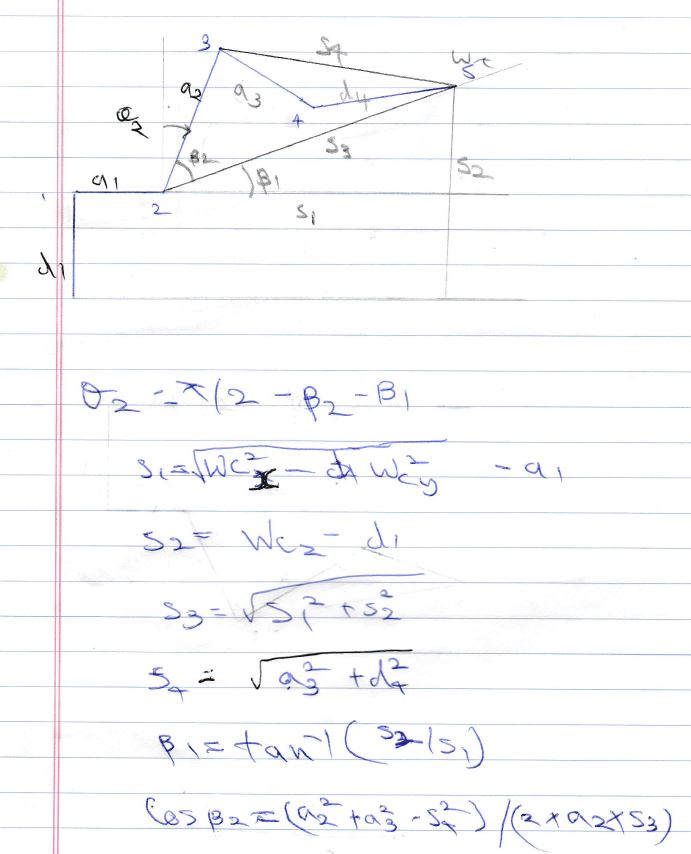 3
S4
WC
5
a2
a3
d4
4
θ2
β2
S3
S2
a1
β1
2
S1
d1
θ2 = π/2 - β2 - β1
S1 = √WCx² - WCy² - a1
S2 = WCz - d1
S3 = √S1² + S2²
S4 = √a3² + d4²
β1 = tan⁻¹ (S2/S1)
Cos β2 = (a2² + a3² - S4²) / (2 × a2 × S3)